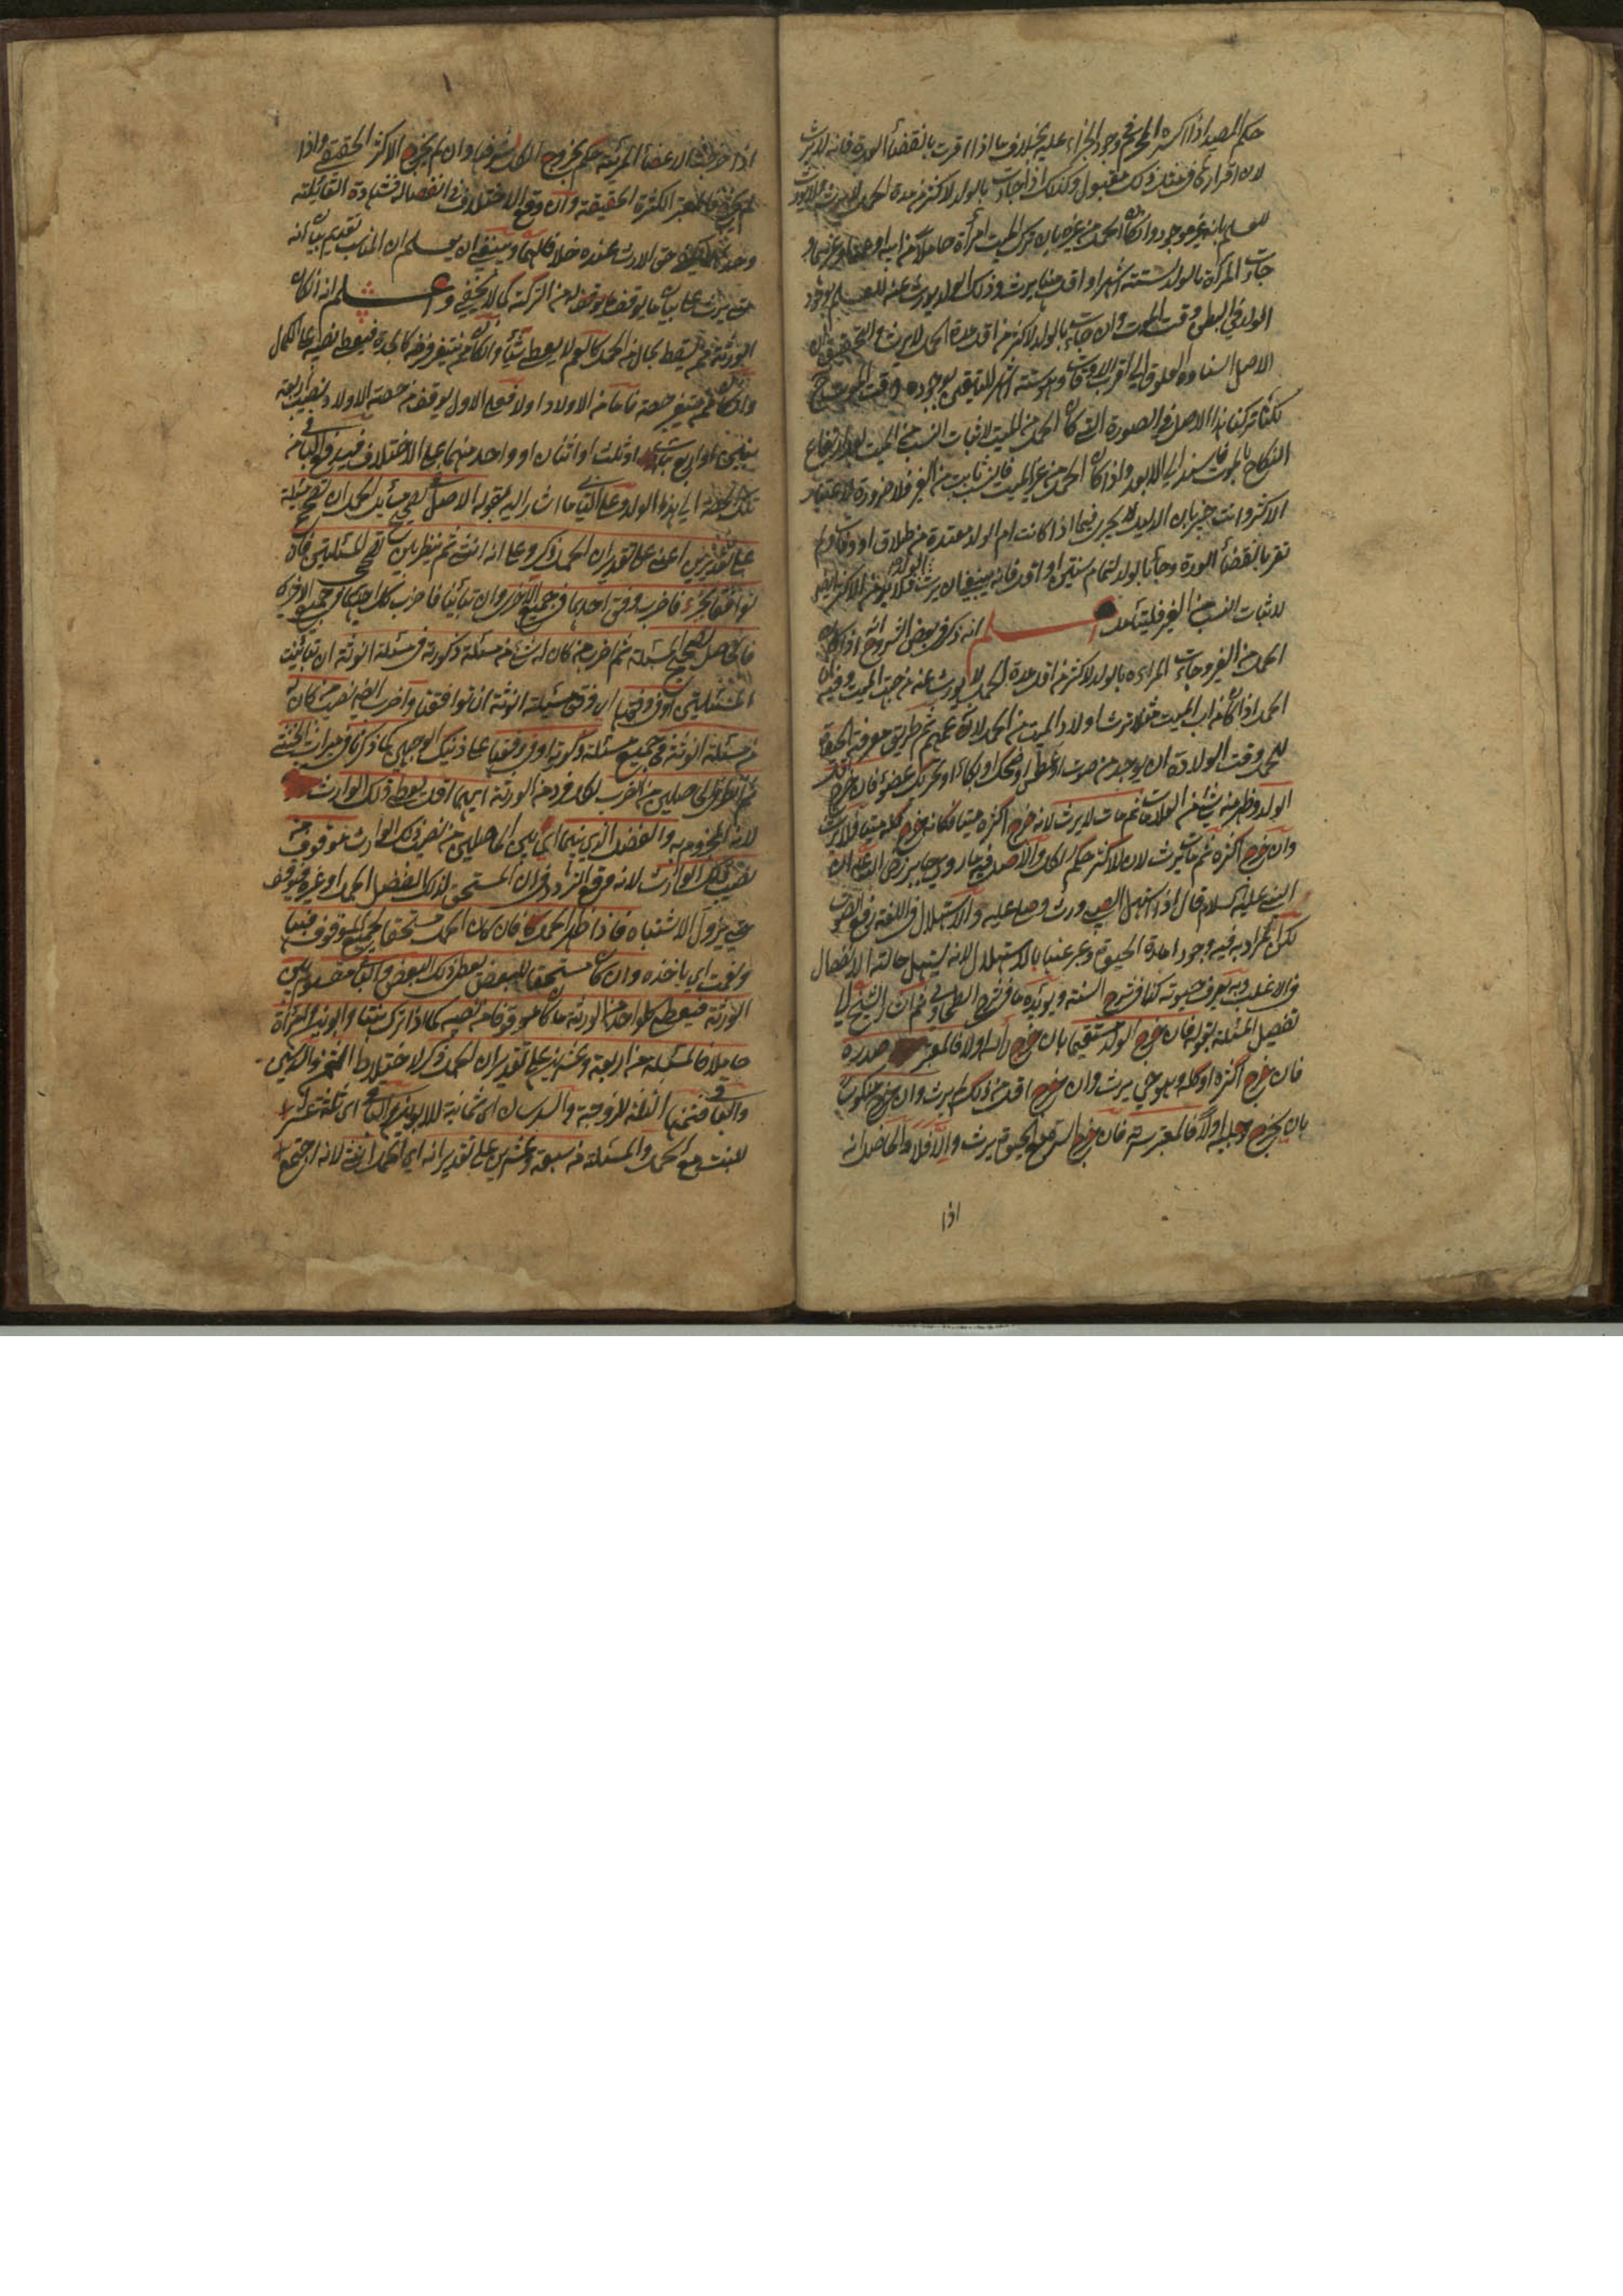 حكم الصيد اذا كسره المحرم في وجود الجزاء عليه بخلاف ما اذا اقرت بانقضاء العدة فانه لا يرث
لان اقرارها مقبول وكذلك اذا جاءت بالولد لاكثر من مدة الحمل لا يرث
للعلم بانه غير موجود وان كان الحمل من غيره بان ترك الميت امرأة حاملا من ابيه او
جاءت المرأة بالولد لستة اشهر او اقل منها يرث وذلك الولد يورث عنه للعلم بوجود
الولد في البطن وقت الموت وان جاءت بالولد لاكثر من اقل مدة الحمل لا يرث والتحقيق ان
الاصل اسناد العلوق الى اقرب الاوقات وهو ستة اشهر للتيقن بوجوده وقت الموت
لكنا تركنا هذا الاصل في الصورة التي كان الحمل من الميت لاثبات النسب من الميت لارتفاع
النكاح بالموت واذا كان الحمل من غير الميت فالنسب ثابت من الغير فلا ضرورة لاعتبار
الاكثر وانت خبير بان الدليل لا يجري فيما اذا كانت ام الولد معتدة من طلاق او وفات ولم
تقر بانقضاء العدة وجاء بالولد لتمام سنتين او اقل فانه ينبغي ان يرث
لاثبات النسب من الغير فليتأمل اعلم انه ذكر في بعض الشروح انه اذا كان
الحمل من الغير وجاءت المراءة بالولد لاكثر من اقل مدة الحمل لا يورث عنه من جهة الميت وفيه
الحمل اذا كان من اب الميت مثلا يرث اولاد الميت من الحمل لانه عمهم ثم طريق معرفة الحيوة
للحمل وقت الولادة ان يوجد منه صوت او عطس او ضحك او بكاء او تحريك عضو فان خرج اقل
الولد وظهر منه شئ من العلامات ثم مات لا يرث لانه خرج اكثره ميتا فكانه خرج كله ميتا فلا يرث
وان خرج اكثره ثم مات يرث لان للاكثر حكم الكل والاصل فيه ما روي جابر رضي الله عنه ان
النبي عليه السلام قال اذا استهل الصبي ورث وصلي عليه والاستهلال في اللغة رفع الصوت
لكن المراد به فيه وجود امارة الحيوة وعبر عنها بالاستهلال لانه يستهل حالة الانفصال
في الاغلب وبه يعرف حيوته كذا في شرح السنة ويؤيده ما في شرح الطحاوي ثم ان الشيخ
تفصيل المسئلة بقوله فان خرج الولد مستقيما بان خرج رأسه اولا فالمعتبر صدره
فان خرج اكثره او كله وهو حي يرث وان خرج اقل من ذلك لم يرث وان خرج منكوسا
بان يخرج رجليه اولا فالمعتبر سرته فان خرج السرة مع الحيوة يرث والا فلا والحاصل انه
اذا
اذا خرجت الاعضاء المرئية حكم بخروج الكل شرفا وان لم يخرج الاكثر الحقيقي واذا
لم يكن فالمعتبر الكثرة الحقيقة وان وقع الاختلاف في انفصاله فشهادة القابلة
وحدها حق الارث عنده خلافا لهما وينبغي ان يعلم ان المناسب تقديم بيان انه
متي يرث على بيان ما يوقف له من التركة كما لا يخفى واعلم انه ان كان
الورثة ممن يسقط بحال من الحمل كالعم لا يعطي شيئا وان كان ممن لا يتغير فرضه كالجدة فيعطي نصيبه على الكمال
وان كان ممن يتغير حصته فاما من الاولاد او لا فعلى الاول يوقف من حصة الاولاد نصيب اربعة
بنين او اربع بنات او ثلث او اثنان او واحد منهما على الاختلاف
تلك الجملة الى هذا الولد وعلى الثاني ما اشار اليه بقوله الاصل في تصحيح مسائل الحمل ان تصحح مسئلة
على تقديرين اعني على تقدير ان الحمل ذكر وعلى انه انثى ثم ينظر بين تصحيح المسئلتين فان
توافقا بجزء فاضرب وفق احدهما في جميع الآخر وان تباينا فاضرب كل احدهما في جميع الآخر
فالحاصل تصحيح المسئلة ثم اضرب من كان له شئ من مسئلة ذكورته في مسئلة انوثته ان تباينت
المسئلتين او في وفقها ان توافقتا واضرب ايضا نصيب من كان له
من مسئلة انوثته في جميع مسئلة ذكورته او في وفقها على ذينك الوجهين كما ذكرنا في ميراث الخنثى
ثم انظر في الحاصلين من الضرب لكل فرد من الورثة ايهما اقل يعطي ذلك الوارث
لانه المجزوم به والفضل الذي بينهما اي بين الحاصلين من نصيب ذلك الوارث موقوف من
نصيب ذلك الوارث لانه وقع التردد في ان المستحق لذلك الفضل الحمل او غيره فيتوقف
حتي يزول الاشتباه فاذا ظهر الحمل فان كان الحمل مستحقا لجميع الموقوف فبها
ونعمت اي ياخذه وان كان مستحقا للبعض يعطي ذلك البعض والباقي مقسوم بين
الورثة فيعطي لكل واحد من الورثة ما كان موقوفا من نصيبه كما اذا ترك بنتا وابوين وامرأة
حاملا فالمسئلة من اربعة وعشرين على تقدير ان الحمل ذكر لاختلاط الثمن والسدسين
والباقي فثمنها الثلثة للزوجة والسدسان اي ثمانية للابوين والباقي اي ثلثة عشر
للبنت مع الحمل والمسئلة من سبعة وعشرين على تقدير انه اي الحمل انثى لانه اجتمع